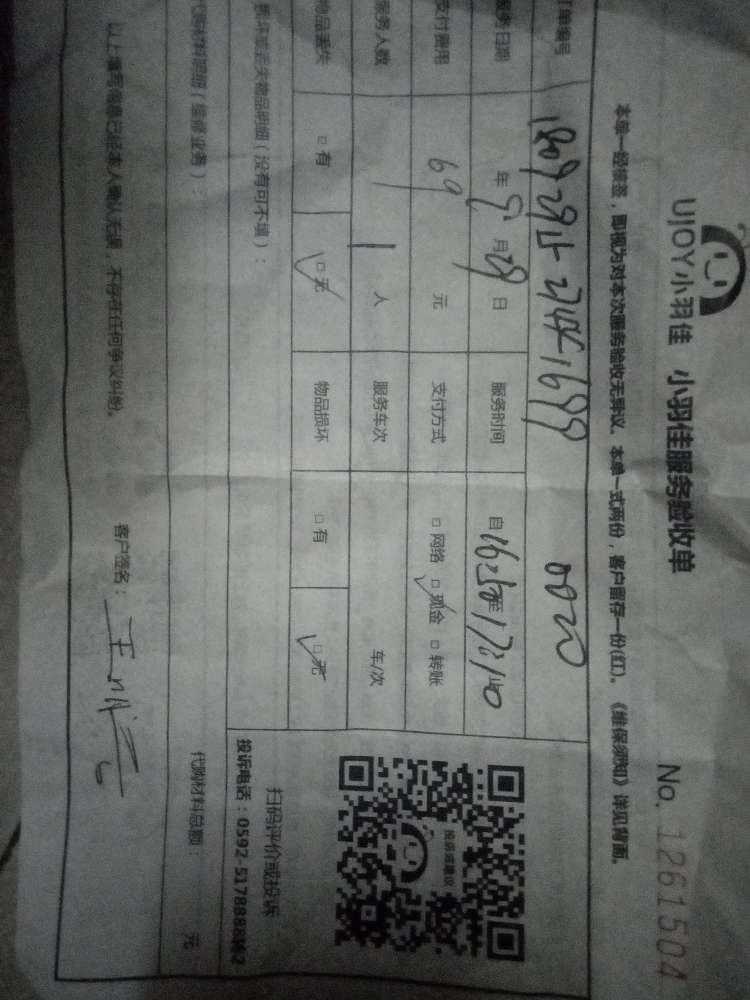 UJOY小羽佳 小羽佳服务验收单 No. 1261504
本单一经接签，即视为对本次服务验收无异议。本单一式两份，客户留存一份(红)。《维保须知》详见背面。
订单编号 0020
服务日期 年 9 月 29 日 服务时间 自 16:50 至 17:40
支付费用 69 元 支付方式 □ 网络 □ 现金 □ 转账
服务人数 1 人 服务车次 车/次
物品丢失 □ 有 □ 无 物品损坏 □ 有 □ 无
损坏或丢失物品明细（没有可不填）：
投诉或建议
扫码评价或投诉
投诉电话：0592-5178888转2
代购材料明细（维修业务）： 代购材料总额： 元
以上填写信息已经本人确认无误，不存在任何争议纠纷。 客户签名：